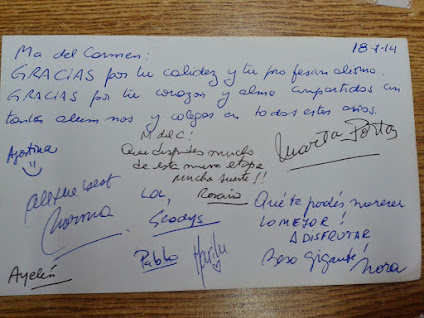 Ma del Carmen:
18-7-14
GRACIAS por tu calidez y tu profesionalismo.
GRACIAS por tu corazon y alma compartidos con
tantos alumnos y colegas en todos estos años.
Agostina
M del C:
Que disfrutes mucho
de esta nueva etapa
mucha suerte!!
Rosario
All the best
Norma
Gladys
Pablo
Marilu
Ayelén
Qué te podés merecer
LO MEJOR!
A DISFRUTAR
Beso gigante!
Nora